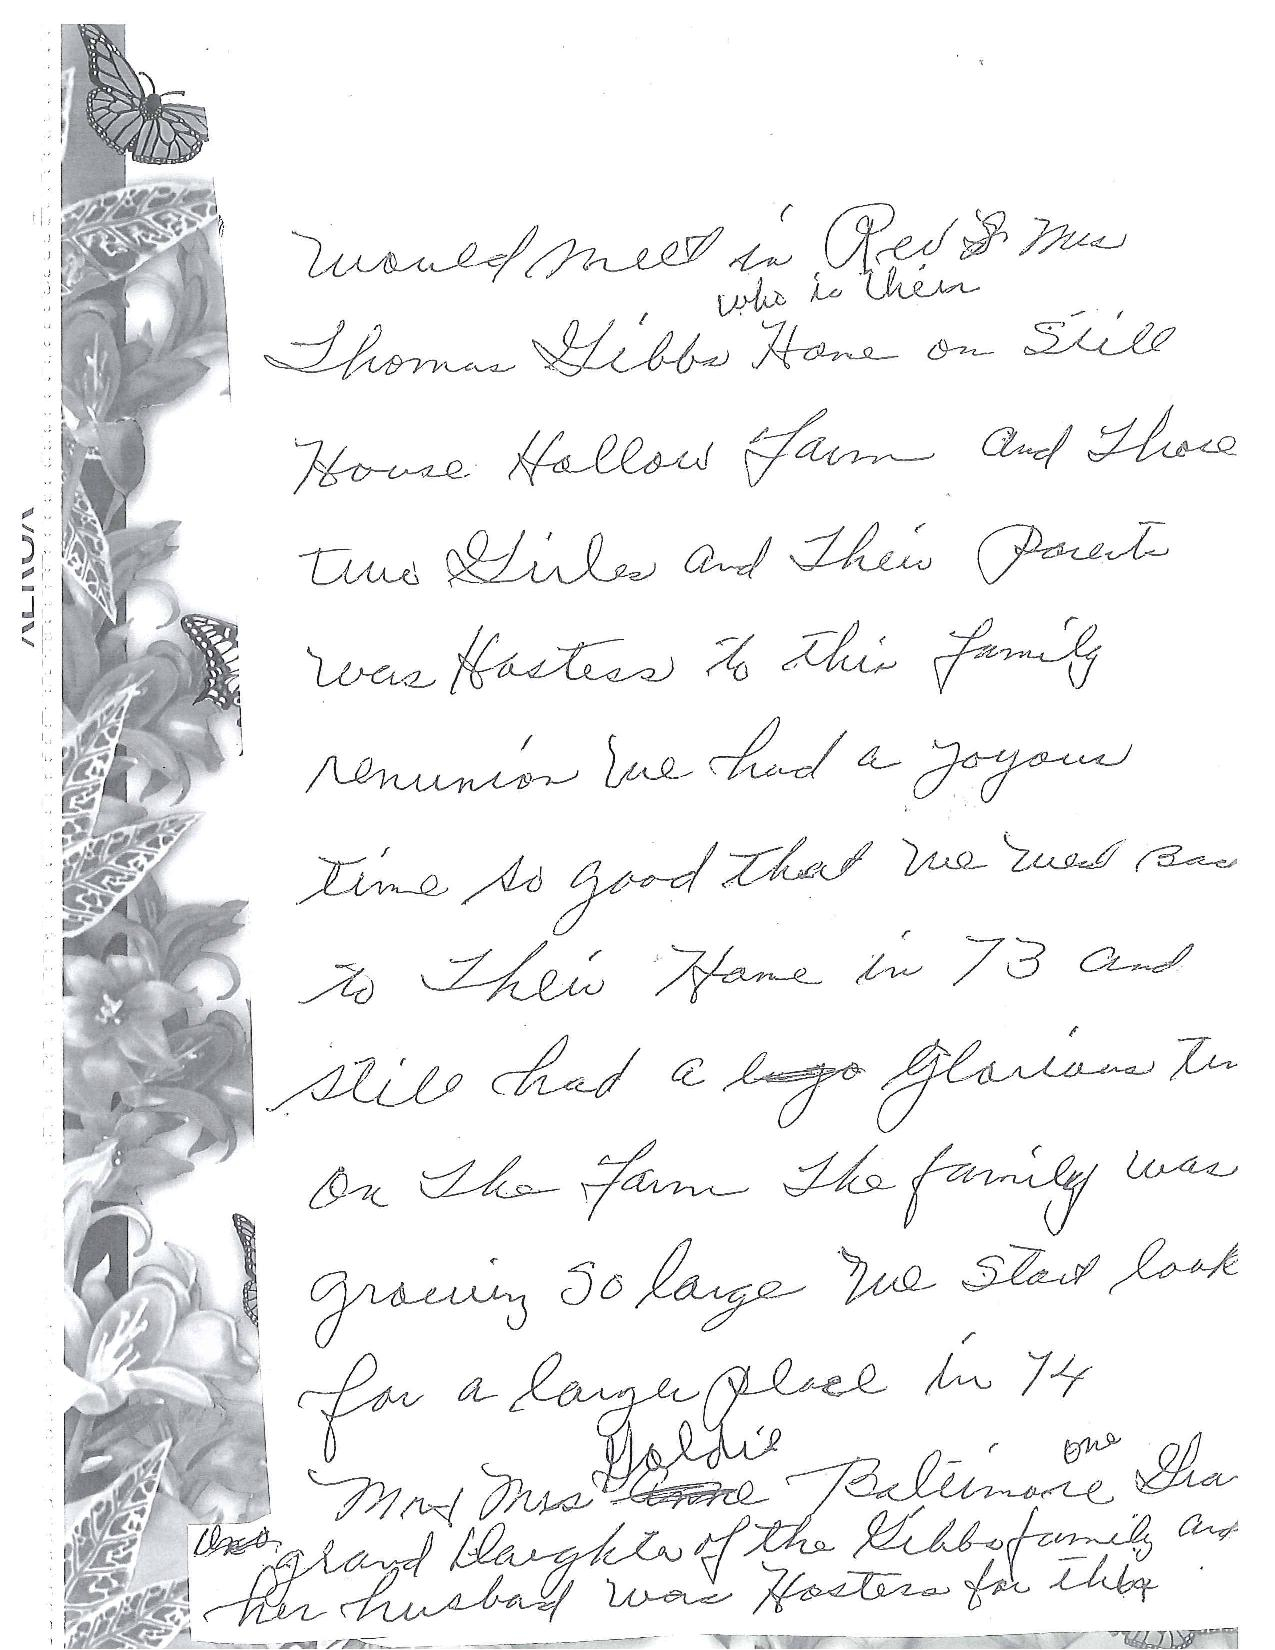 would meet in Rev & Mrs
who is their
Thomas Gibbs Home on Still
House Hollow Farm and Those
two Girles and Their Parents
was Hostess to this family
renunion we had a yoyous
time so good that we went Bac
to Their Home in 73 and
still had a Glorious tim
on The Farm The family was
growing so large we start look
for a larger place in 74
Goldie one
Mr & Mrs Baltimore Gra
grand Daughter of the Gibbs family and
her husbad was Hostess for this